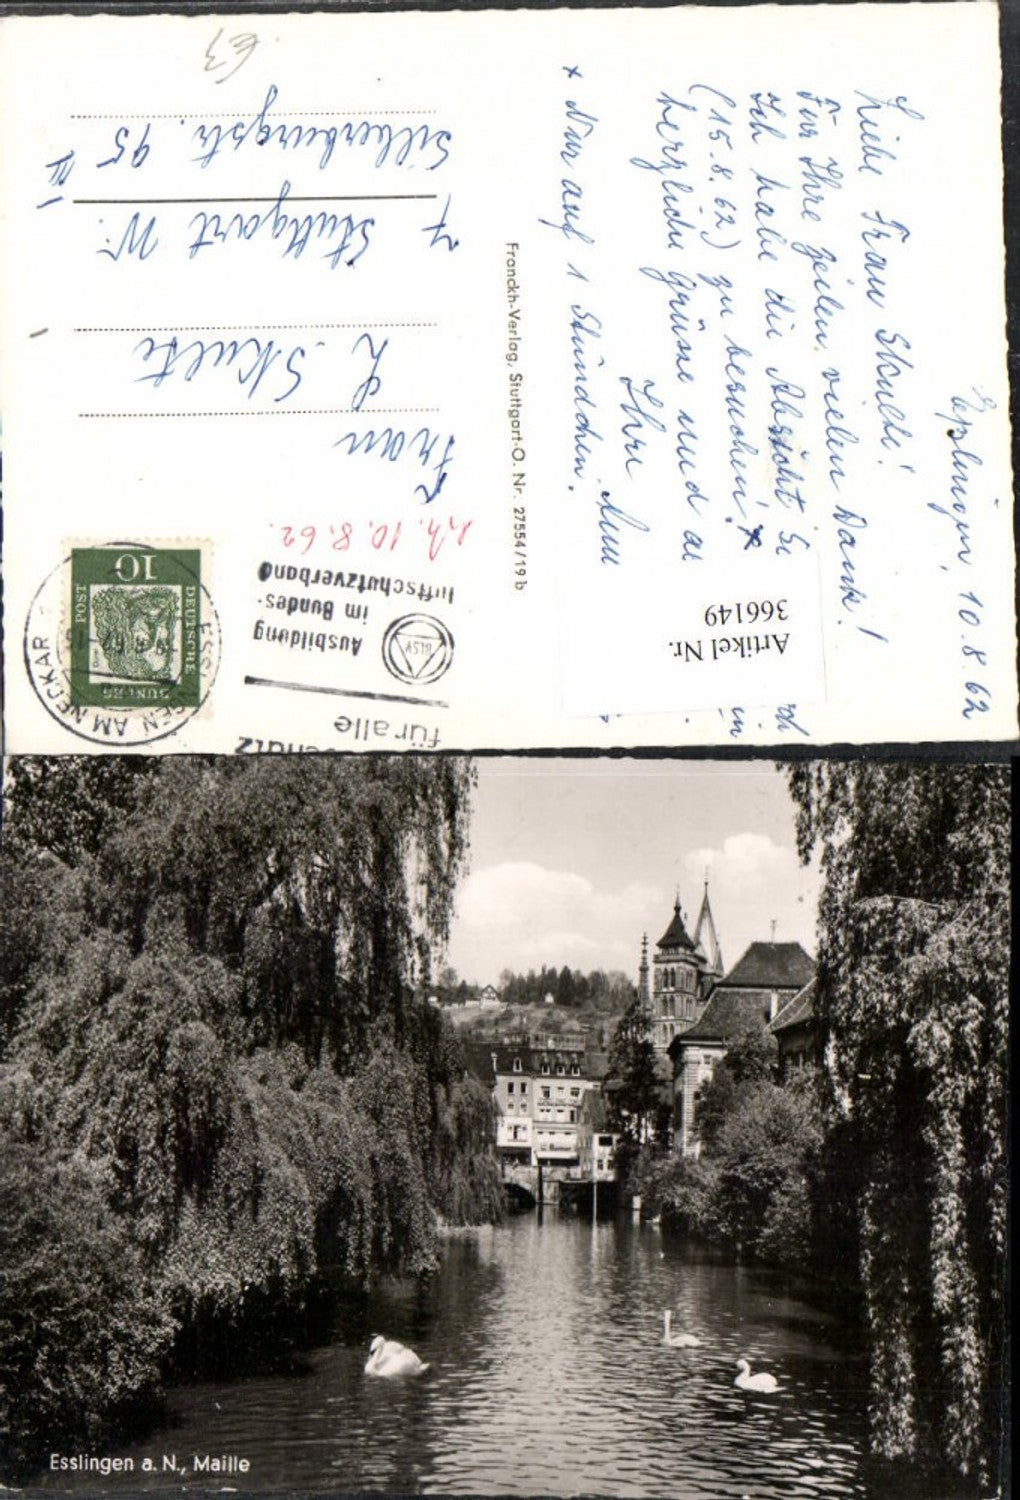 Esslingen, 10.8.62
Liebe Frau Skulte!
Für Ihre Zeilen vielen Dank!
Ich habe die Absicht Sie
(15.8.62) zu besuchen! *
herzliche Grüsse und
Ihre
* Nur auf 1 Stündchen.
Artikel Nr.
366149
Franckh-Verlag, Stuttgart-O. Nr. 27554/19b
für alle
Ausbildung
im Bundes-
luftschutzverband
BLSV
ESSLINGEN AM NECKAR
DEUTSCHE
BUNDES
POST
10
10.8.62.
Frau
L. Skulte
7 Stuttgart W.
Silberburgstr. 95 III
€3
Esslingen a. N., Maille